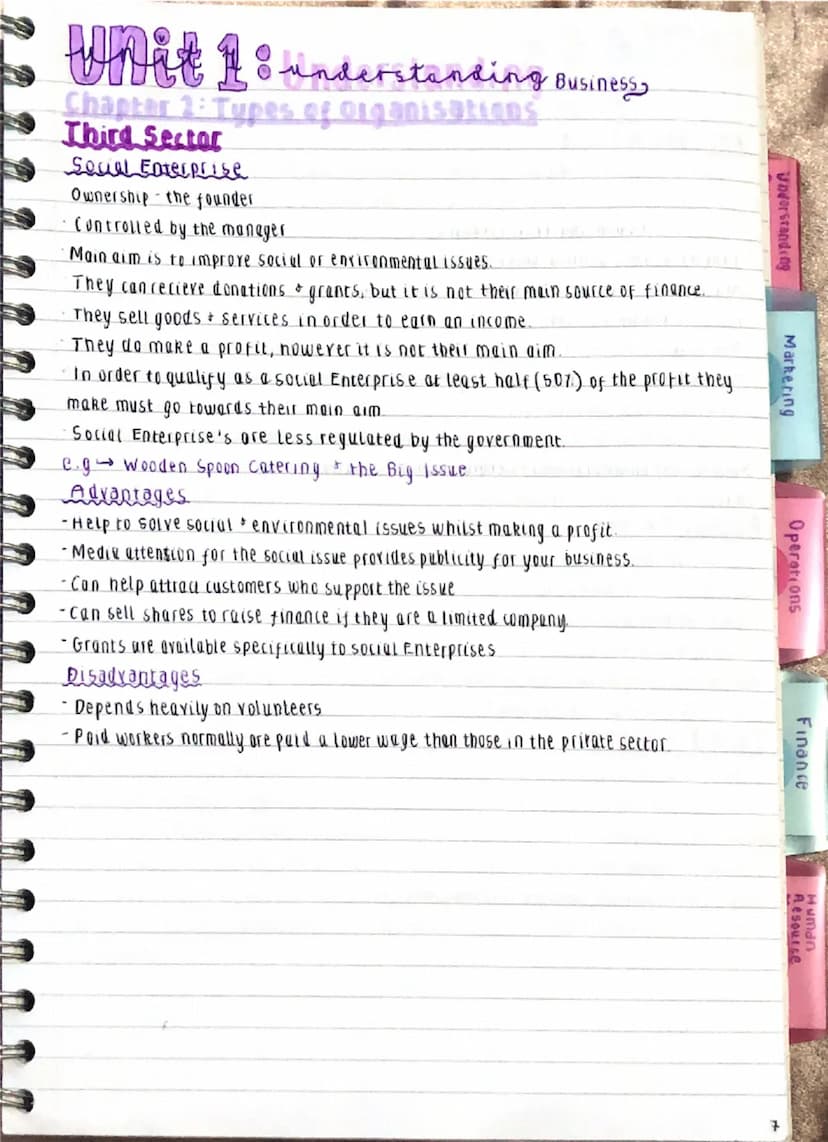 Unit 1: Understanding Business
Chapter 2: Types of Organisations
Third Sector
Social Enterprise
Ownership - the founder
· Controlled by the manager
· Main aim is to improve social or environmental issues.
· They can recieve donations + grants, but it is not their main source of finance.
· They sell goods + services in order to earn an income.
· They do make a profit, however it is not their main aim.
· In order to qualify as a social Enterprise at least half (50%) of the profit they
make must go towards their main aim
· Social Enterprise's are less regulated by the government.
e.g → Wooden Spoon Catering + the Big Issue
Advantages
- Help to solve social + environmental issues whilst making a profit.
- Media attention for the social issue provides publicity for your business.
- Can help attract customers who support the issue
- Can sell shares to raise finance if they are a limited company.
- Grants are available specifically to social Enterprises
Disadvantages
- Depends heavily on volunteers
- Paid workers normally are paid a lower wage than those in the private sector.
7
Understanding
Marketing
Operations
Finance
Human
Resource